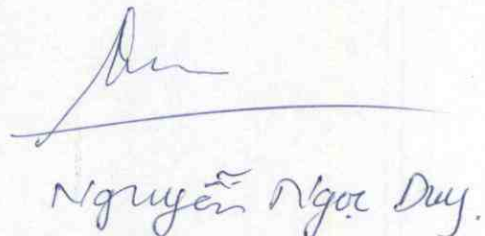 Nguyễn Ngọc Duy.